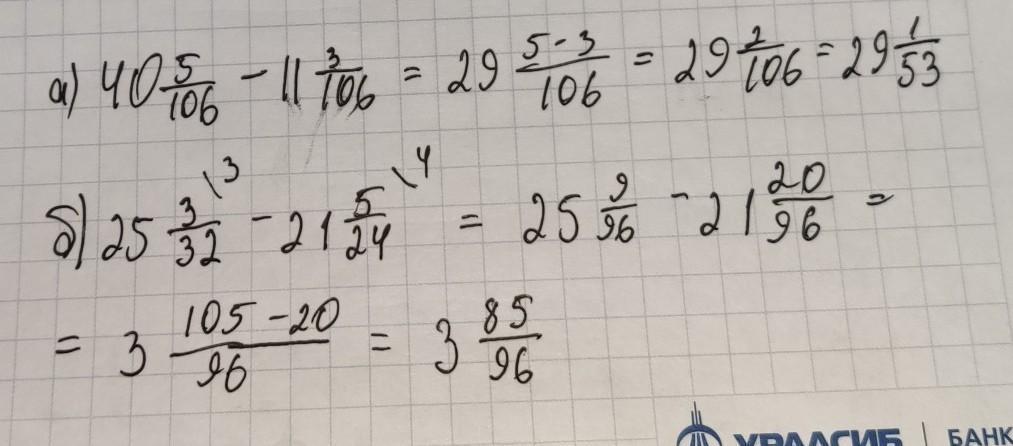 а) 40 5/106 - 11 3/106 = 29 (5-3)/106 = 29 2/106 = 29 1/53
б) 25 3/32 \3 - 21 5/24 \4 = 25 9/96 - 21 20/96 =
= 3 (105-20)/96 = 3 85/96
УРАЛСИБ | БАНК